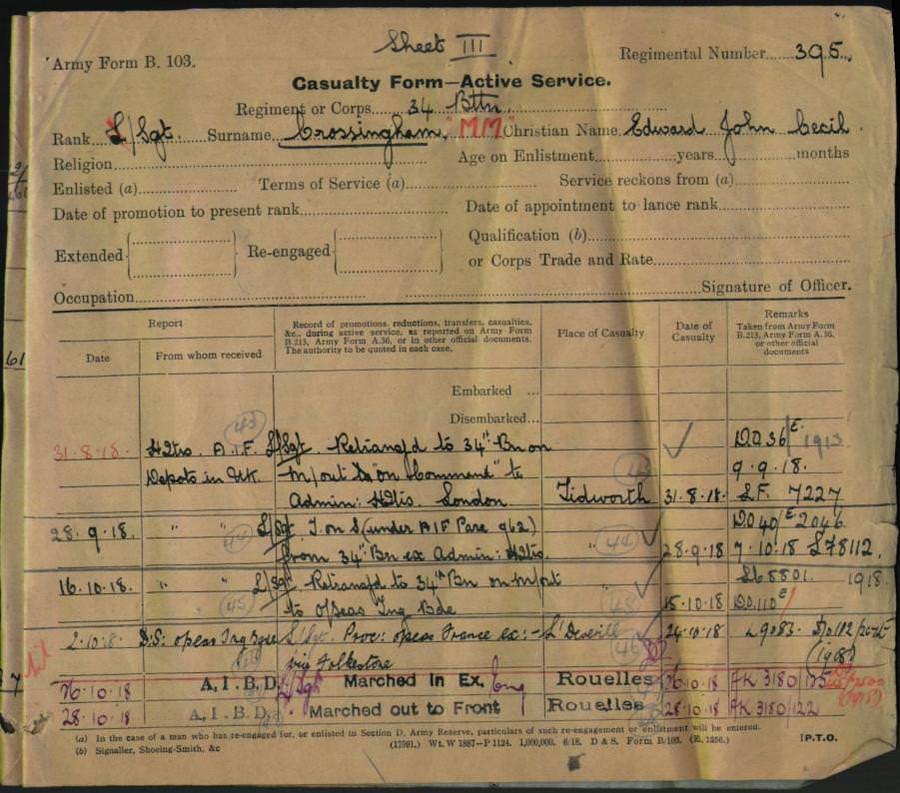 Sheet III
Army Form B. 103.
Regimental Number 395.
Casualty Form—Active Service.
Regiment or Corps 34 Bttn.
Rank L/Sgt. Surname Crossingham. "MM" Christian Name Edward John Cecil.
Religion Age on Enlistment years months
Enlisted (a) Terms of Service (a) Service reckons from (a)
Date of promotion to present rank Date of appointment to lance rank
Extended Re-engaged Qualification (b)
or Corps Trade and Rate
Occupation Signature of Officer.
Report
Date
From whom received
Record of promotions, reductions, transfers, casualties,
&c., during active service, as reported on Army Form
B.213, Army Form A.36, or in other official documents.
The authority to be quoted in each case.
Place of Casualty
Date of
Casualty
Remarks
Taken from Army Form
B.213, Army Form A.36,
or other official
documents
Embarked ...
Disembarked...
43
31.8.18. Hdtrs. A.I.F. L/Sgt. to 34th Bn on DO36/E 1913
Depots in UK. m/out to "on Command" to 9.9.18.
Admin: London. Tidworth 31.8.18. LF. 7227
28.9.18. " " L/Sgt. T on S (under AIF 962) 44 DO40/E 2046
from 34th Bn ex Admin: " 28.9.18 7.10.18 L78112.
16.10.18. " " L/Sgt. to 34th Bn on m/out 1918.
45 to O/seas Trg Bde 15.10.18 DO110E
L/Sgt. Proc: o/seas France ex:- 46 24.10.18
via Folkestone (1918)
26.10.18 A.I.B.D. L/Sgt Marched In Ex. Eng Rouelles 26.10.18 AK 3180/125
28.10.18 A.I.B.D. Marched out to Front Rouelles 28.10.18 AK 3180/122
(a) In the case of a man who has re-engaged for, or enlisted in Section D. Army Reserve, particulars of such re-engagement or enlistment will be entered.
(b) Signaller, Shoeing-Smith, &c (17591.) Wt. W 1887—P 1124. 1,000,000. 6/18. D & S. Form B/103. (E. 1256.) [P.T.O.